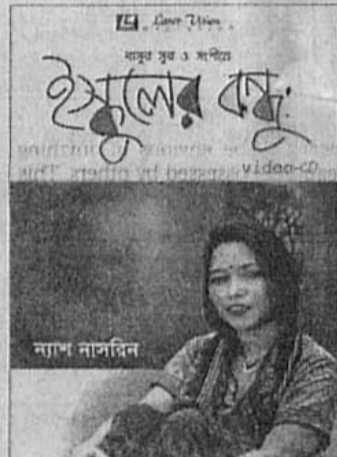 Laser Vision
বাসুর সুর ও সংগীতে
ইস্কুলের বন্ধু
video-CD
ন্যাশ নাসরিন